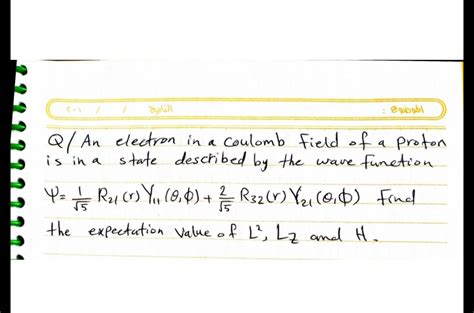 الموضوع : التاريخ / / ٢٠١
Q/ An electron in a coulomb field of a proton
is in a state described by the wave function
Ψ = 1/√5 R₂₁(r) Y₁₁(θ,ϕ) + 2/√5 R₃₂(r) Y₂₁(θ,ϕ) find
the expectation value of L², Lz and H.